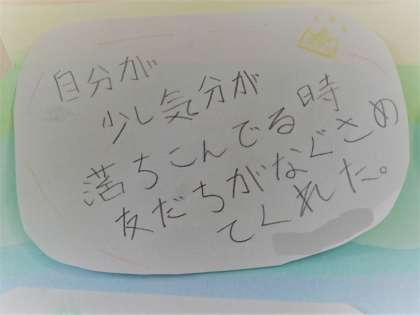 自分が
少し気分が
落ちこんでる時
友だちがなぐさめ
てくれた。